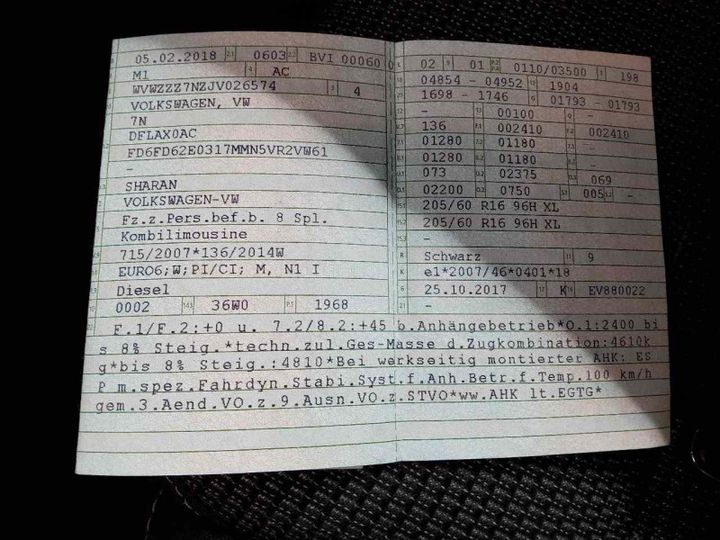 05.02.2018 2.1 0603 2.2 BVI 00060 0
M1 4 AC
WVWZZZ7NZJV026574 3 4
VOLKSWAGEN, VW
7N
DFLAX0AC
FD6FD62E0317MMN5VR2VW61
-
SHARAN
VOLKSWAGEN-VW
Fz.z.Pers.bef.b. 8 Spl.
Kombilimousine
715/2007*136/2014W
EURO6;W;PI/CI; M, N1 I
Diesel
0002 14.1 36W0 P.1 1968
02 9 01 P.2 P.4 0110/03500 T 198
04854 - 04952 1904
1698 - 1746 G 01793 - 01793
- 00100 -
136 002410 002410
01280 01180 -
01280 01180 -
073 02375 069
02200 0750 005 -
205/60 R16 96H XL
205/60 R16 96H XL
-
R Schwarz 11 9
K e1*2007/46*0401*18
6 25.10.2017 17 K 16 EV880022
21 -
22 F.1/F.2:+0 u. 7.2/8.2:+45 b.Anhängebetrieb*O.1:2400 bi
s 8% Steig.*techn.zul.Ges-Masse d.Zugkombination:4610k
g*bis 8% Steig.:4810*Bei werkseitig montierter AHK: ES
P m.spez.Fahrdyn.Stabi.Syst.f.Anh.Betr.f.Temp.100 km/h
gem.3.Aend.VO.z.9.Ausn.VO.z.STVO*ww.AHK lt.EGTG*